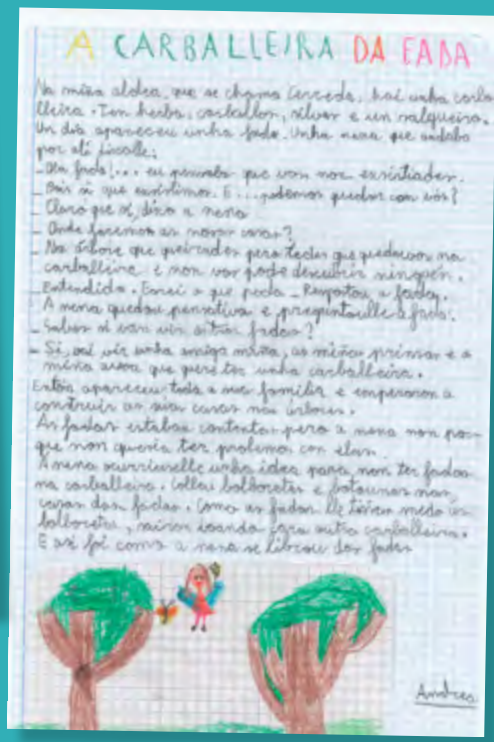 A CARBALLEIRA DA FADA
Na miña aldea, que se chama Cerceda, hai unha carba
lleira. Ten herba, carballos, silvas e un salgueiro.
Un día apareceu unha fada. Unha nena que andaba
por alí díxolle:
- Ola fada!... eu pensaba que vos non existiades.
- Pois si que existimos. E... podemos quedar con vós?
- Claro que si, dixo a nena
- Onde faremos as nosas casas?
- Na árbore que queirades pero tedes que quedarvos na
carballeira e non vos pode descubrir ninguén.
- Entendido. Farei o que poda - Respostou a fada.
A nena quedou pensativa e preguntoulle á fada:
- Sabes si van vir outras fadas?
- Si, vai vir unha amiga miña, as miñas primas e a
miña avoa que quere ter unha carballeira.
Entón apareceu toda a súa familia e empezaron a
construir as súas casas nas árbores.
As fadas estaban contentas pero a nena non por
que non quería ter prolemas con elas.
A nena ocurriuselle unha idea para non ter fadas
na carballeira. Colleu bolboretas e botounas nas
casas das fadas. Como as fadas lle tiñan medo as
bolboretas, marcharon para outra carballeira.
E así foi como a nena se librou das fadas
Andrea